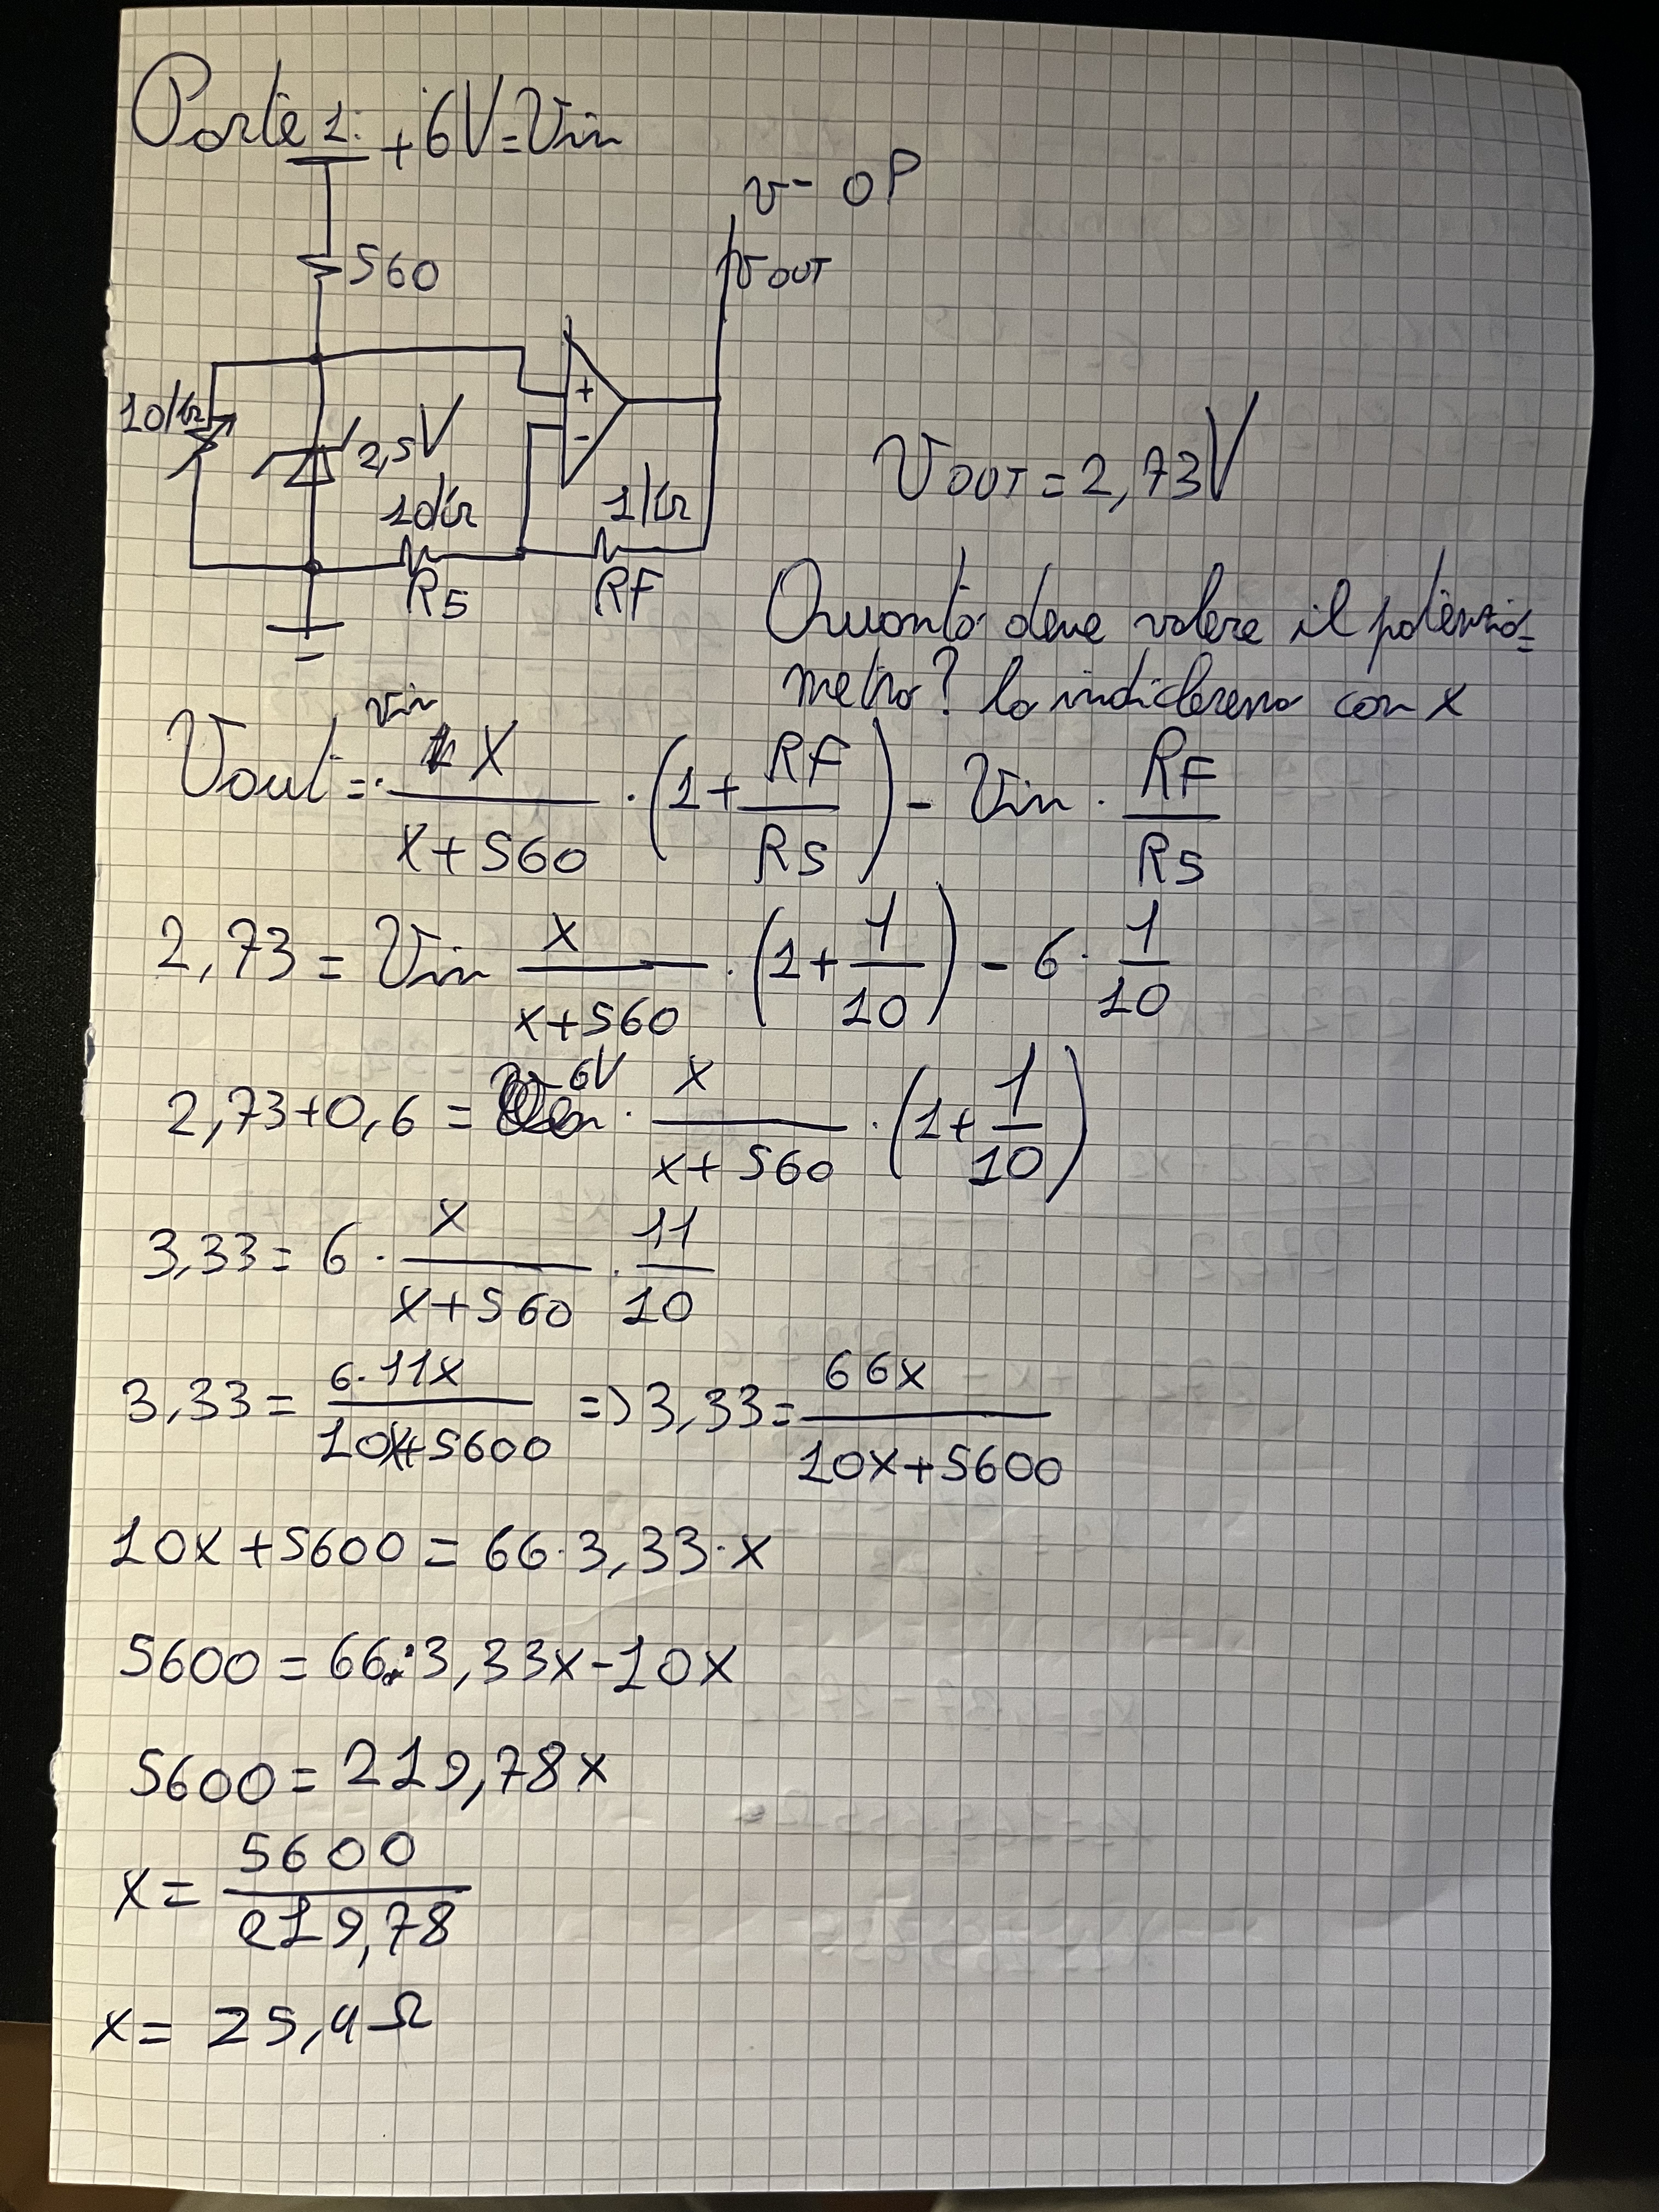 Parte 1: +6V=Vin
v- OP
560
VOUT
10k
2,5V
+
-
10k
1k
R5
RF
VOUT = 2,73V
Quanto deve valere il potenzio=
metro? lo indicheremo con x
Vout = Vin · X / (X+560) · (1 + RF/R5) - Vin · RF/R5
2,73 = Vin x / (x+560) · (1 + 1/10) - 6 · 1/10
2,73+0,6 = 6V · x / (x+560) · (1 + 1/10)
3,33 = 6 · x / (x+560) · 11/10
3,33 = 6·11x / (10x+5600) => 3,33 = 66x / (10x+5600)
10x+5600 = 66·3,33·x
5600 = 66·3,33x-10x
5600 = 219,78x
x = 5600 / 219,78
x = 25,4Ω